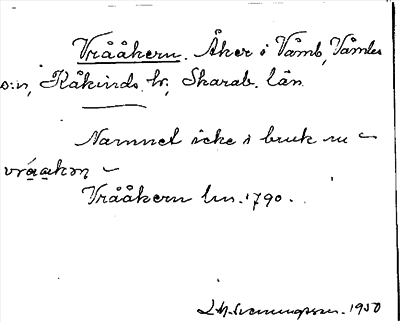 Vrååkern. Åker i Våmb, Våmbs
s:n, Kåkinds hr, Skarab. län
Namnet icke i bruk nu –
vrå̱a̱kən –
Vrååkern lm. 1790.
1950